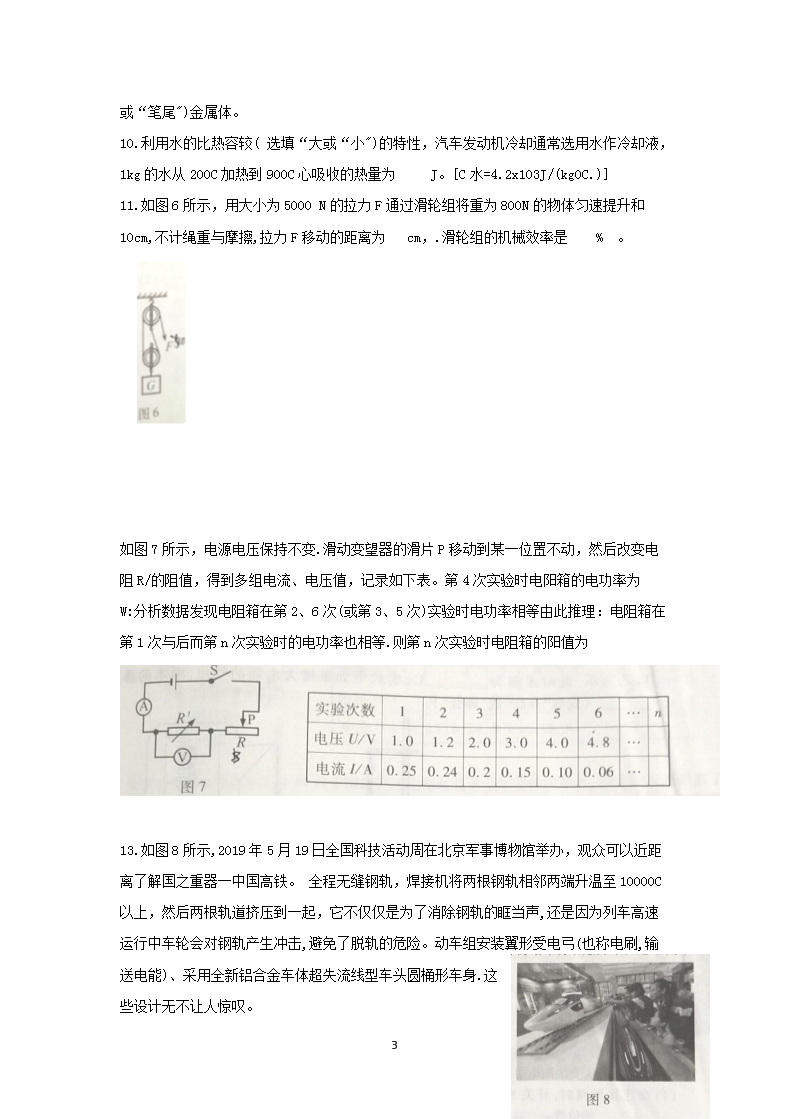 或“笔尾")金属体。
10.利用水的比热容较( 选填“大或“小")的特性，汽车发动机冷却通常选用水作冷却液，
1kg的水从200C加热到900C心吸收的热量为 J。[C水=4.2x103J/(kgOC.)]
11.如图6所示，用大小为5000 N的拉力F通过滑轮组将重为800N的物体匀速提升和
10cm,不计绳重与摩擦,拉力F移动的距离为 cm，.滑轮组的机械效率是 % 。
F
G
图6
如图7所示，电源电压保持不变.滑动变望器的滑片P移动到某一位置不动，然后改变电
阻R/的阻值，得到多组电流、电压值，记录如下表。第4次实验时电阳箱的电功率为
W:分析数据发现电阻箱在第2、6次(或第3、5次)实验时电功率相等由此推理：电阻箱在
第1次与后而第n次实验时的电功率也相等.则第n次实验时电阻箱的阳值为
S
A
R'
P
R
V
8
图7
实验次数 1 2 3 4 5 6 … n
电压U/V 1.0 1.2 2.0 3.0 4.0 4.8 …
电流I/A 0.25 0.24 0.2 0.15 0.10 0.06 …
13.如图8所示,2019年5月19日全国科技活动周在北京军事博物馆举办，观众可以近距
离了解国之重器一中国高铁。 全程无缝钢轨，焊接机将两根钢轨相邻两端升温至10000C
以上，然后两根轨道挤压到一起，它不仅仅是为了消除钢轨的眶当声,还是因为列车高速
运行中车轮会对钢轨产生冲击,避免了脱轨的危险。动车组安装翼形受电弓(也称电刷,输
送电能)、采用全新铝合金车体超失流线型车头圆桶形车身.这
些设计无不让人惊叹。
图8
3